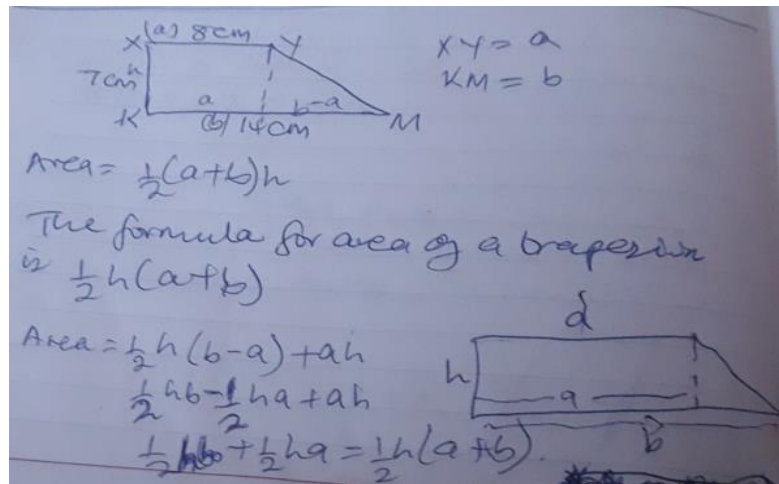 X (a) 8cm Y
XY = a
7cm h
KM = b
a b-a
K (b) 14cm M
Area = ½(a+b)h
The formula for area of a trapezium
is ½h(a+b)
Area = ½h(b-a)+ah
½hb-½ha+ah
½hb+½ha = ½h(a+b).
a
h
a
b